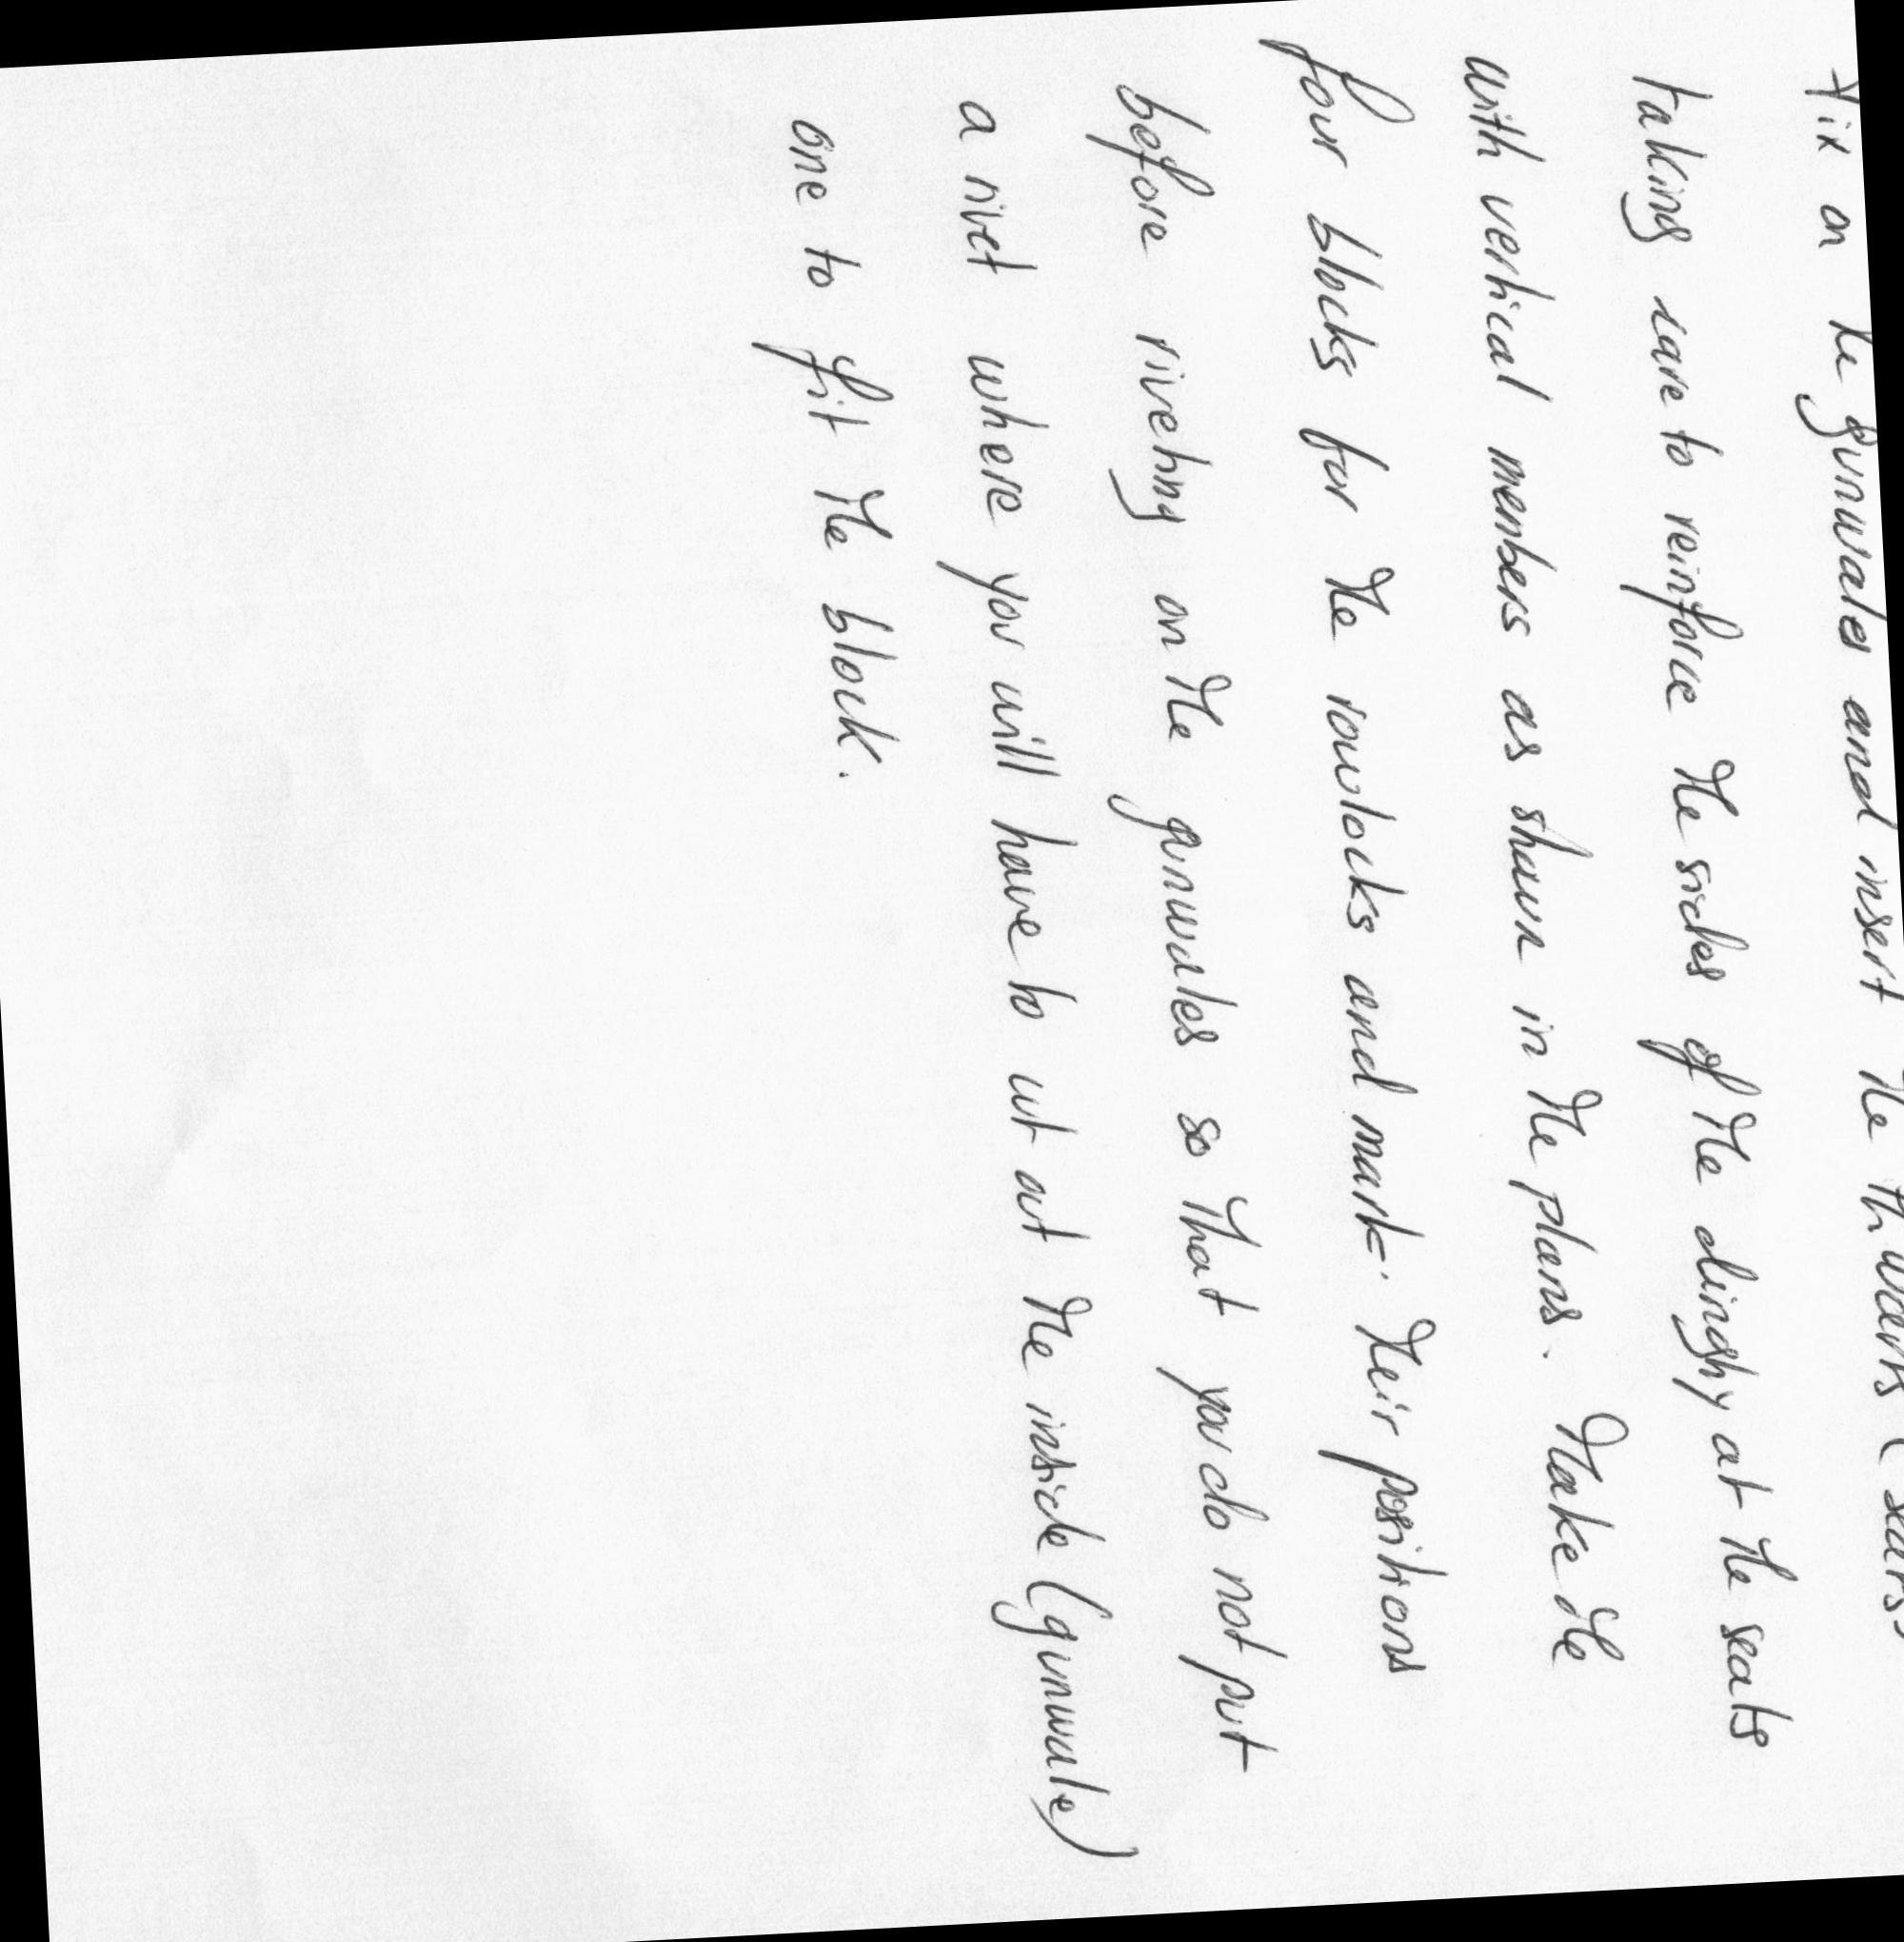 Fix on the gunwales and insert the thwarts (seats)
taking care to reinforce the sides of the dinghy at the seats
with vertical members as shown in the plans. Make the
four blocks for the rowlocks and mark. their positions
before riveting on the gunwales so that you do not put
a rivet where you will have to cut out the inside (gunwale)
one to fit the block.